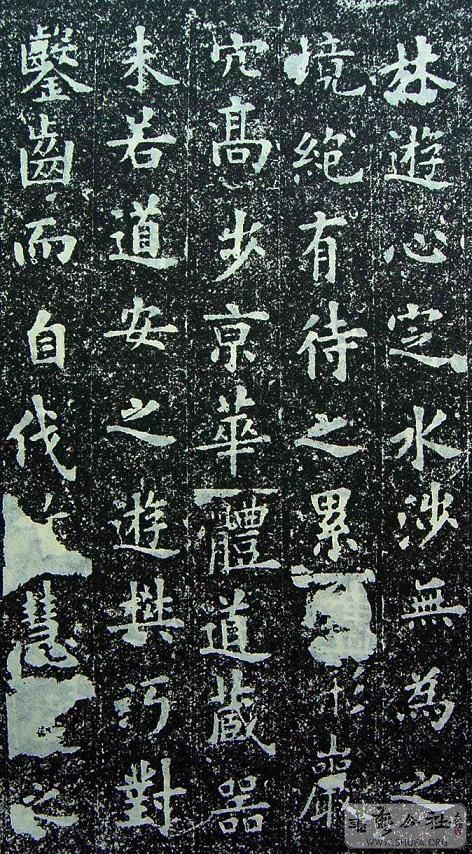 林遊心定水涉無為之
境絕有待之累形巖
穴高步京華體道藏器
未若道安之遊樊沔對
鑿齒而自伐慧之
公社
WWW.SHUFA.ORG